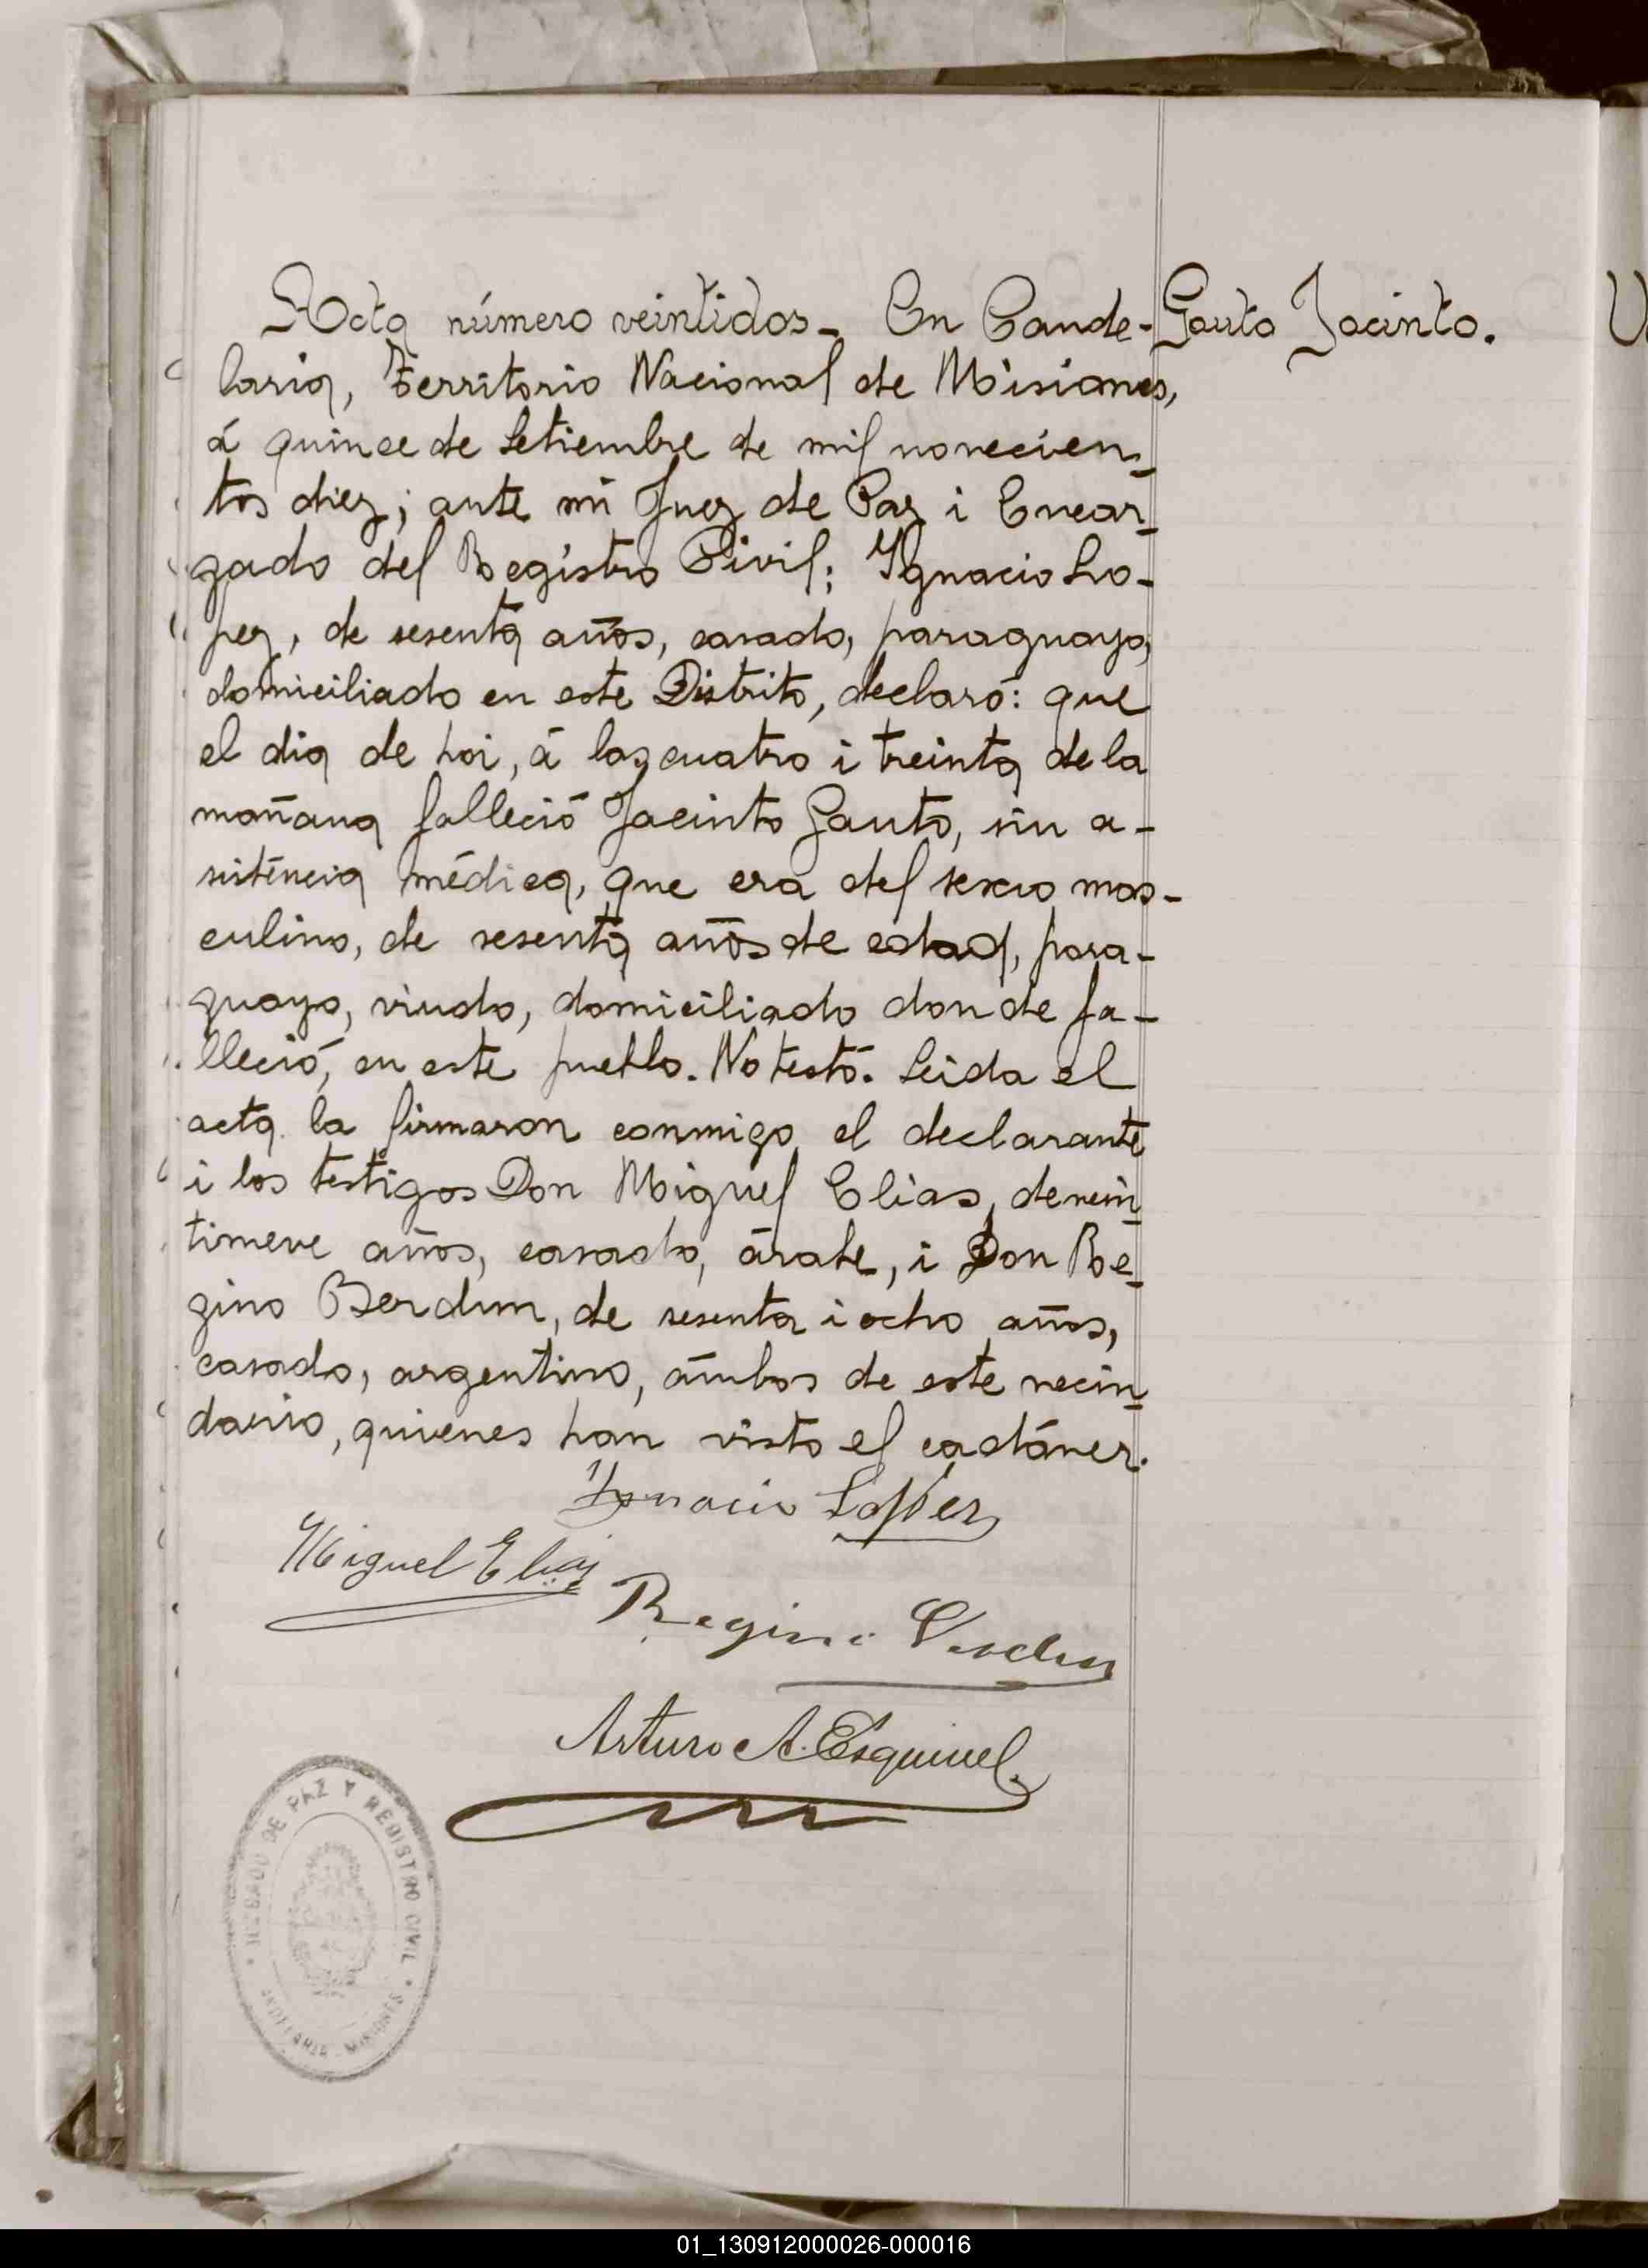 Acta número veintidos- En Cande-
Gauto Jacinto.
laria, Territorio Nacional de Misiones,
á quince de Setiembre de mil novecien-
tos diez; ante mi Juez de Paz i Encar-
gado del Registro Civil; Ygnacio Lo-
pez, de sesenta años, casado, paraguayo,
domiciliado en este Distrito, declaró: que
el dia de hoi, á las cuatro i treinta de la
mañana falleció Jacinto Gauto, sin a-
sisténcia médica, que era del sexso mas-
culino, de sesenta años de edad, para-
guayo, viudo, domiciliado donde fa-
lleció, en este pueblo. No testó. Leida el
acta la firmaron conmigo el declarante
i los testigos Don Miguel Elias, de vein-
tinueve años, casado, árabe, i Don Re-
gino Berdun, de sesenta i ocho años,
casado, argentino, ámbos de este vecin-
dario, quienes han visto el cadáver.
Ygnacio Lopez
Miguel Elias
Regino Verdun
Arturo A. Esquivel
JUZGADO DE PAZ Y REGISTRO CIVIL
CANDELARIA - MISIONES
01_130912000026-000016